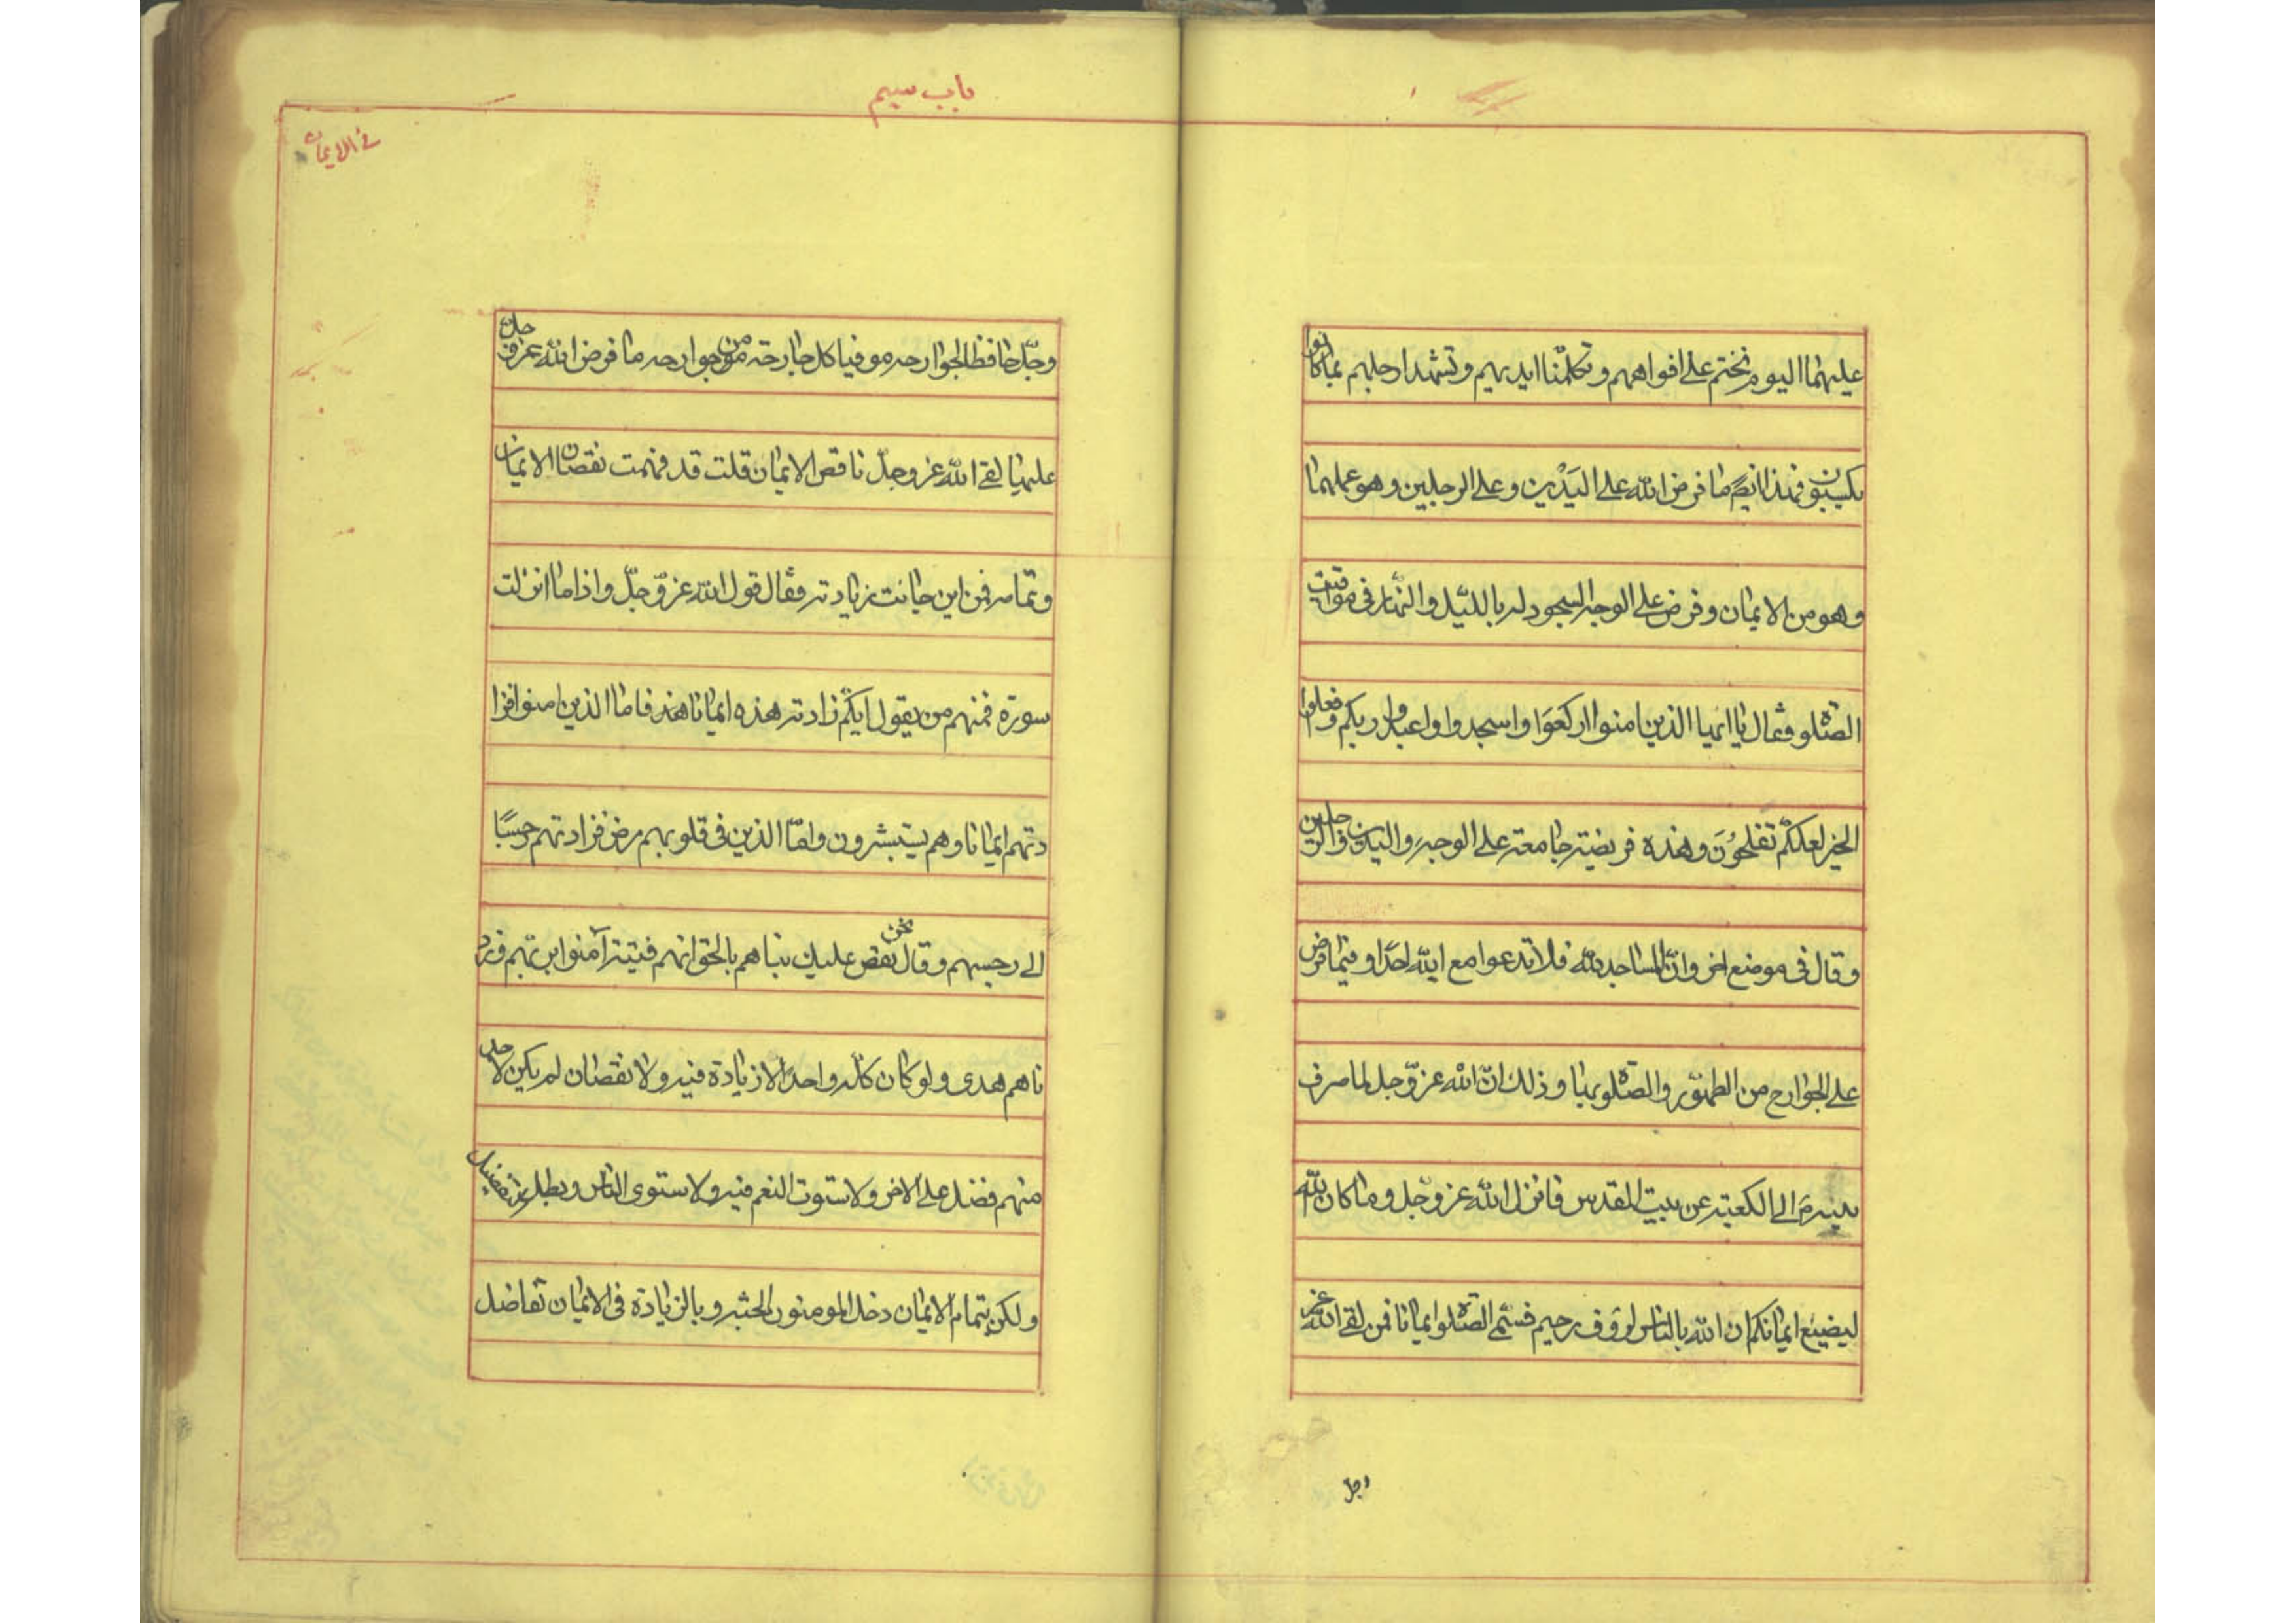 عليهما اليوم نختم على افواههم و تكلّمنا ايديهم و تشهد ارجلهم بما كانوا
يكسبون فهذا ايضًا ما فرض الله على اليَدَين و على الرجلين و هو عملهما
و هو من الايمان و فرض على الوجه السجود له بالليّل و النّهار فى مواقيت
الصّلوة فقال يا ايها الذين امنوا اركعوَا و اسجدوا و اعبدوا ربكم و افعلوا
الخير لعلكّم تفلحُونَ و هذه فريضة جامعة على الوجه و اليدين و الرجلين
و قال فى موضع اخر و انّ المساجد لله فلا تدعوا مع الله احدًا و فيما فرض
على الجوارح من الطهّور و الصّلوة بها و ذلك انّ الله عز وّ جل لما صرف
نبيه ص الى الكعبة عن بيت المقدس فانزل الله عز و جّل و ما كان الله
ليضيع ايمانكم ان الله بالناس لرؤف رحيم فسّمى الصّلوة ايمانا فمن لقى الله عز
وجل
باب سيم
فى الايمان
و جّل حافظا لجوارحه موفيا كل جارحة من جوارحه ما فرض الله عز و جل
عليها لقى الله عز و جلّ ناقص الايمان قلت قد فهمت نقصان الايمان
و تمامه فمن اين جائت زيادته فقال قول الله عز وّ جلّ و اذا ما انزلت
سورة فمنهم من يقول ايكّم زادته هذه ايمانا هذه فاما الذين امنوا فزا
دتهم ايمانا و هم يستبشرون و امّا الذين فى قلوبهم مرض فزادتهم رجسًا
الى رجسهم و قال نحن نقص عليك نباهم بالحق انهم فتية آمنوا بربّهم و زد
ناهم هدى و لو كان كلّه واحدًا لا زيادة فيه و لا نقصان لم يكن لاحد
منهم فضل على الاخر و لاستوت النعم فيه و لاستوى النّاس و بطل تفضيل
و لكن بتمام الايمان دخل المومنون الجنّة و بالزيادة فى الايمان تفاضل